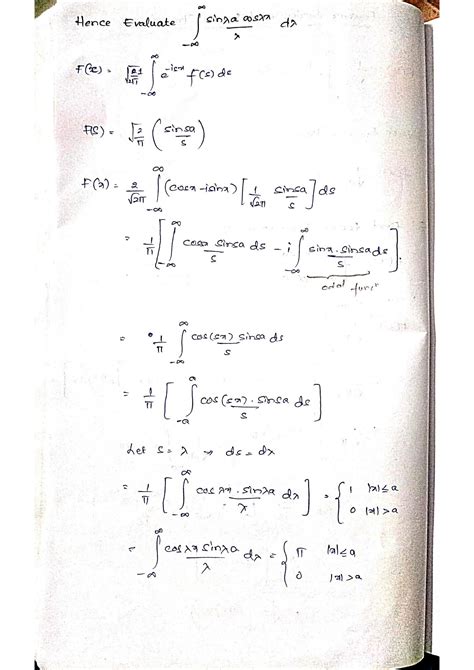 Hence Evaluate ∫_{-∞}^{∞} sinλa cosλx / λ dλ
F(x) = 1/√2π ∫_{-∞}^{∞} e^{-isx} f(s) ds
F(s) = √2/π (sinsa / s)
F(x) = 2/√2π ∫_{-∞}^{∞} (cosx - isinx) [1/√2π sinsa / s] ds
= 1/π [∫_{-∞}^{∞} cosx sinsa ds / s - i ∫_{-∞}^{∞} sinx . sinsa ds / s].
odd funct
= 1/π ∫_{-∞}^{∞} cos(sx) sinsa ds / s
= 1/π [∫_{-a}^{a} cos(sx) . sinsa ds / s]
Let s = λ → ds = dλ
= 1/π [∫_{-∞}^{∞} cosλx . sinλa dλ / λ] = { 1 |x| ≤ a
0 |x| > a
= ∫_{-∞}^{∞} cosλx sinλa / λ dλ = { π |x| ≤ a
0 |x| > a